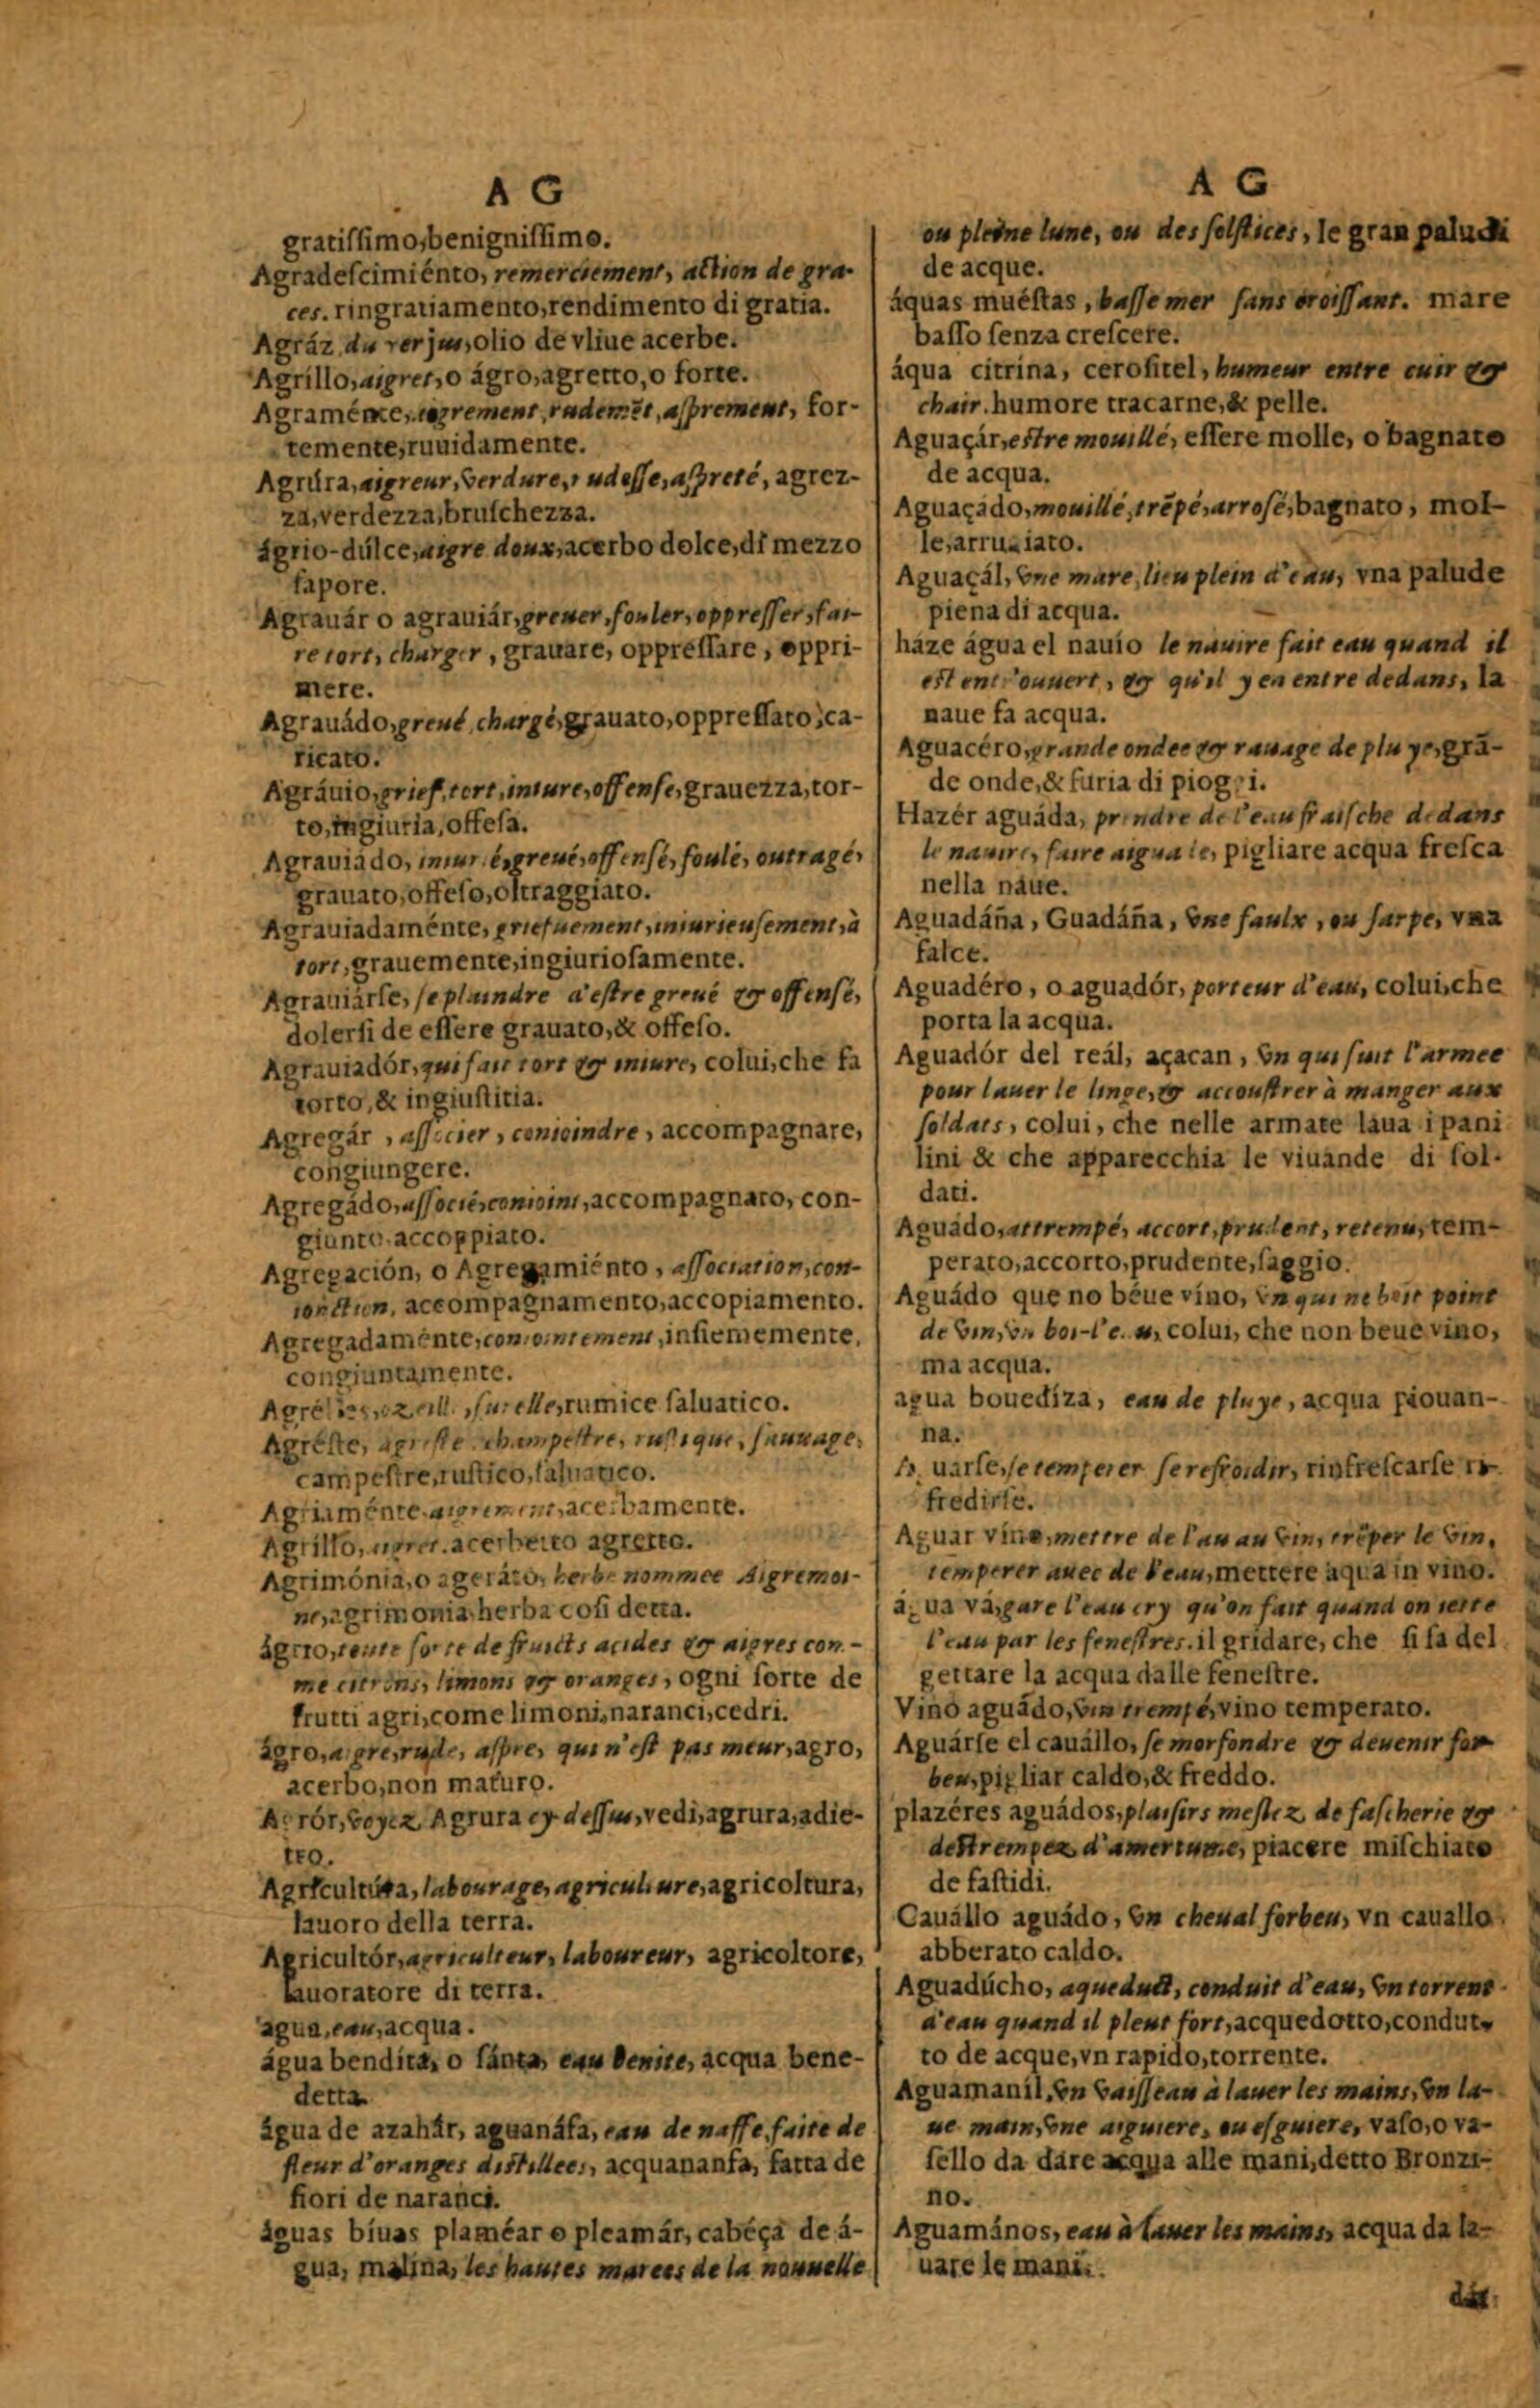 A G
gratiſſimo,benigniſſimo.
Agradeſcimiénto, remerciement, action de gra-
ces. ringratiamento,rendimento di gratia.
Agráz du verjus,olio de vliue acerbe.
Agrillo,aigret,o ágro,agretto,o forte.
Agraménte, aigrement, rudemẽt, aſprement, for-
temente,ruuidamente.
Agrúra,aigreur,verdure,rudeſſe,aſpreté, agrez-
za,verdezza,bruſchezza.
ágrio-dúlce,aigre doux,acerbo dolce,di mezzo
ſapore.
Agrauár o agrauiár,greuer,fouler,oppreſſer,fai-
re tort, charger, grauare, oppreſſare, oppri-
mere.
Agrauádo,greué,chargé,grauato,oppreſſato,ca-
ricato.
Agráuio,grief,tort,iniure,offenſe,grauezza,tor-
to,ingiuria,offeſa.
Agrauiádo, iniurié,greué,offenſé,foulé, outragé,
grauato,offeſo,oltraggiato.
Agrauiadaménte, griefuement,iniurieuſement,à
tort,grauemente,ingiurioſamente.
Agrauiárſe, ſe plaindre d'eſtre greué & offenſé,
dolerſi de eſſere grauato,& offeſo.
Agrauiadór,qui fait tort & iniure, colui,che fa
torto,& ingiuſtitia.
Agregár , aſſocier , conioindre , accompagnare,
congiungere.
Agregádo,aſſocié,conioint,accompagnato, con-
giunto.accoppiato.
Agregación, o Agregamiénto , aſſociation,con-
ionction, accompagnamento,accopiamento.
Agregadaménte,conioíntement,inſiememente,
congiuntamente.
ozeille,ſurelle,rumice ſaluatico.
Agréſte, agreſte champeſtre, ruſtique, ſauuage,
campeſtre,ruſtico,ſaluatico.
Agriaménte.aigrement,acerbamente.
Agrillo, aigret.acerbetto agretto.
Agrimónia,o ageráto, herbe nommee Aigremoi-
ne,agrimonia herba coſi detta.
ágrio,toute ſorte de fruicts acides & aigres com-
me citrons, limons & oranges, ogni ſorte de
frutti agri,come limoni,naranci,cedri.
ágro,aigre,rude, aſpre, qui n'eſt pas meur,agro,
acerbo,non maturo.
Agrór,voyez Agrura cy deſſus,vedi,agrura,adie-
tro.
Agricultúra,labourage,agriculture,agricoltura,
lauoro della terra.
Agricultór,agriculteur, laboureur, agricoltore,
lauoratore di terra.
agua,eau,acqua.
água bendíta, o ſánta, eau benite, acqua bene-
detta
água de azahár, aguanáfa, eau de naffe,faite de
fleur d'oranges diſtillees, acquananfa, fatta de
fiori de naranci.
águas bíuas plaméar o pleamár, cabéça de á-
gua, malina, les hautes marees de la nouuelle
A G
ou pleine lune, ou des ſolſtices, le gran paludi
de acque.
áquas muéſtas , baſſe mer ſans croiſſant. mare
baſſo ſenza creſcere.
áqua citrina, ceroſitel, humeur entre cuir &
chair.humore tracarne,& pelle.
Aguaçár,eſtre mouillé, eſſere molle, o bagnato
de acqua.
Aguaçádo,mouillé,trẽpé,arroſé,bagnato, mol-
le,arrugiato.
Aguaçál, vne mare, lieu plein d'eau, vna palude
piena di acqua.
háze água el nauío le nauire fait eau quand il
eſt entr'ouuert, & qu'il y en entre dedans, la
naue fa acqua.
Aguacéro,grande ondee & rauage de pluye,grã-
de onde,& furia di pioggi.
Hazér aguáda, prendre de l'eau fraiſche dedans
le nauire, faire aiguade, pigliare acqua freſca
nella naue.
Aguadáña, Guadáña, vne faulx , ou ſarpe, vna
falce.
Aguadéro, o aguadór, porteur d'eau, colui,che
porta la acqua.
Aguadór del reál, açacan , vn qui ſuit l'armee
pour lauer le linge,& accouſtrer à manger aux
ſoldats, colui, che nelle armate laua i pani
lini & che apparecchia le viuande di ſol-
dati.
Aguádo,attrempé, accort,prudent, retenu,tem-
perato,accorto,prudente,ſaggio.
Aguádo que no béue víno, vn qui ne boit point
de vin,vn boi-l'eau, colui, che non beue vino,
ma acqua.
agua bouedíza, eau de pluye, acqua piouan-
na.
uarſe,ſe temperer ſe refroidir, rinfreſcarſe ri-
fredirſe.
Aguar víno,mettre de l'au au vin, trẽper le vin,
temperer auec de l'eau,mettere aqua in vino.
água vá,gare l'eau cry qu'on fait quand on iette
l'eau par les feneſtres.il gridare, che ſi fa del
gettare la acqua dalle feneſtre.
Vino aguádo,vin trempé,vino temperato.
Aguárſe el cauállo, ſe morfondre & deuenir for-
beu,pigliar caldo,& freddo.
plazéres aguádos,plaiſirs meſlez de faſcherie &
deſtrempez d'amertume, piacere miſchiato
de faſtidi.
Cauállo aguádo, vn cheual forbeu, vn cauallo
abberato caldo.
Aguadúcho, aqueduct, conduit d'eau, vn torrent
d'eau quand il pleut fort,acquedotto,condut-
to de acque,vn rapido,torrente.
Aguamaníl,vn vaiſſeau à lauer les mains,vn la-
ue main,vne aiguiere, ou eſguiere, vaſo,o va-
ſello da dare acqua alle mani,detto Bronzi-
no.
Aguamános, eau à lauer les mains, acqua da la-
uare le mani.